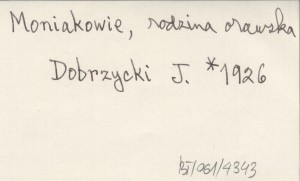 Moniakowie, rodzina orawska
Dobrzycki J. *1926
BJ/061/4343